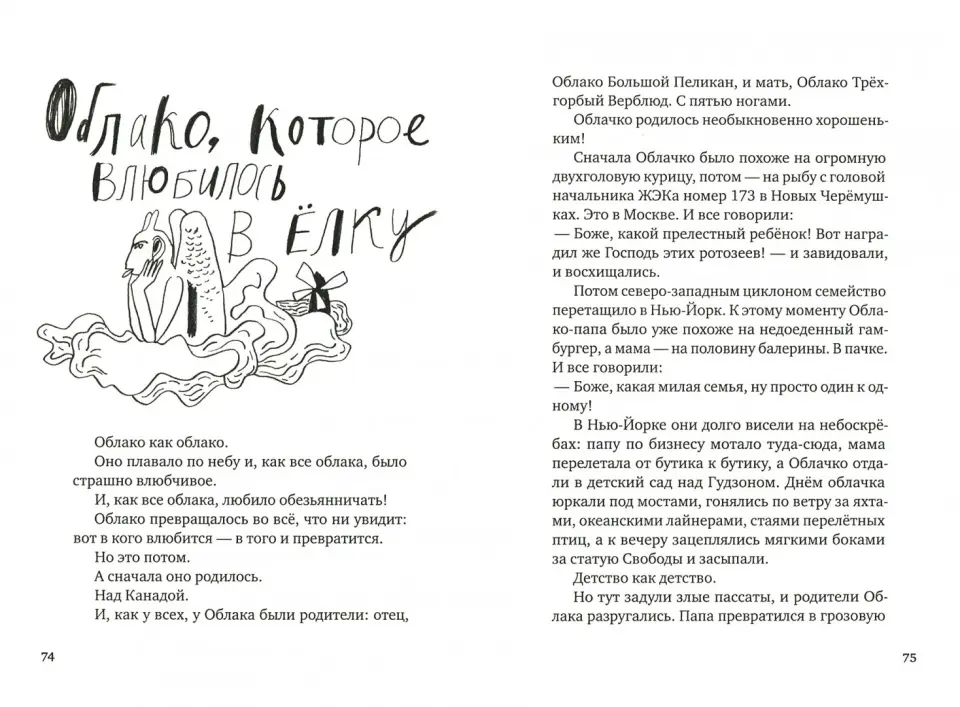 Облако, которое
влюбилось
в ёлку
Облако как облако.
Оно плавало по небу и, как все облака, было
страшно влюбчивое.
И, как все облака, любило обезьянничать!
Облако превращалось во всё, что ни увидит:
вот в кого влюбится — в того и превратится.
Но это потом.
А сначала оно родилось.
Над Канадой.
И, как у всех, у Облака были родители: отец,
74
Облако Большой Пеликан, и мать, Облако Трёх-
горбый Верблюд. С пятью ногами.
Облачко родилось необыкновенно хорошень-
ким!
Сначала Облачко было похоже на огромную
двухголовую курицу, потом — на рыбу с головой
начальника ЖЭКа номер 173 в Новых Черёмуш-
ках. Это в Москве. И все говорили:
— Боже, какой прелестный ребёнок! Вот награ-
дил же Господь этих ротозеев! — и завидовали,
и восхищались.
Потом северо-западным циклоном семейство
перетащило в Нью-Йорк. К этому моменту Обла-
ко-папа было уже похоже на недоеденный гам-
бургер, а мама — на половину балерины. В пачке.
И все говорили:
— Боже, какая милая семья, ну просто один к од-
ному!
В Нью-Йорке они долго висели на небоскрё-
бах: папу по бизнесу мотало туда-сюда, мама
перелетала от бутика к бутику, а Облачко отда-
ли в детский сад над Гудзоном. Днём облачка
юркали под мостами, гонялись по ветру за яхта-
ми, океанскими лайнерами, стаями перелётных
птиц, а к вечеру зацеплялись мягкими боками
за статую Свободы и засыпали.
Детство как детство.
Но тут задули злые пассаты, и родители Об-
лака разругались. Папа превратился в грозовую
75